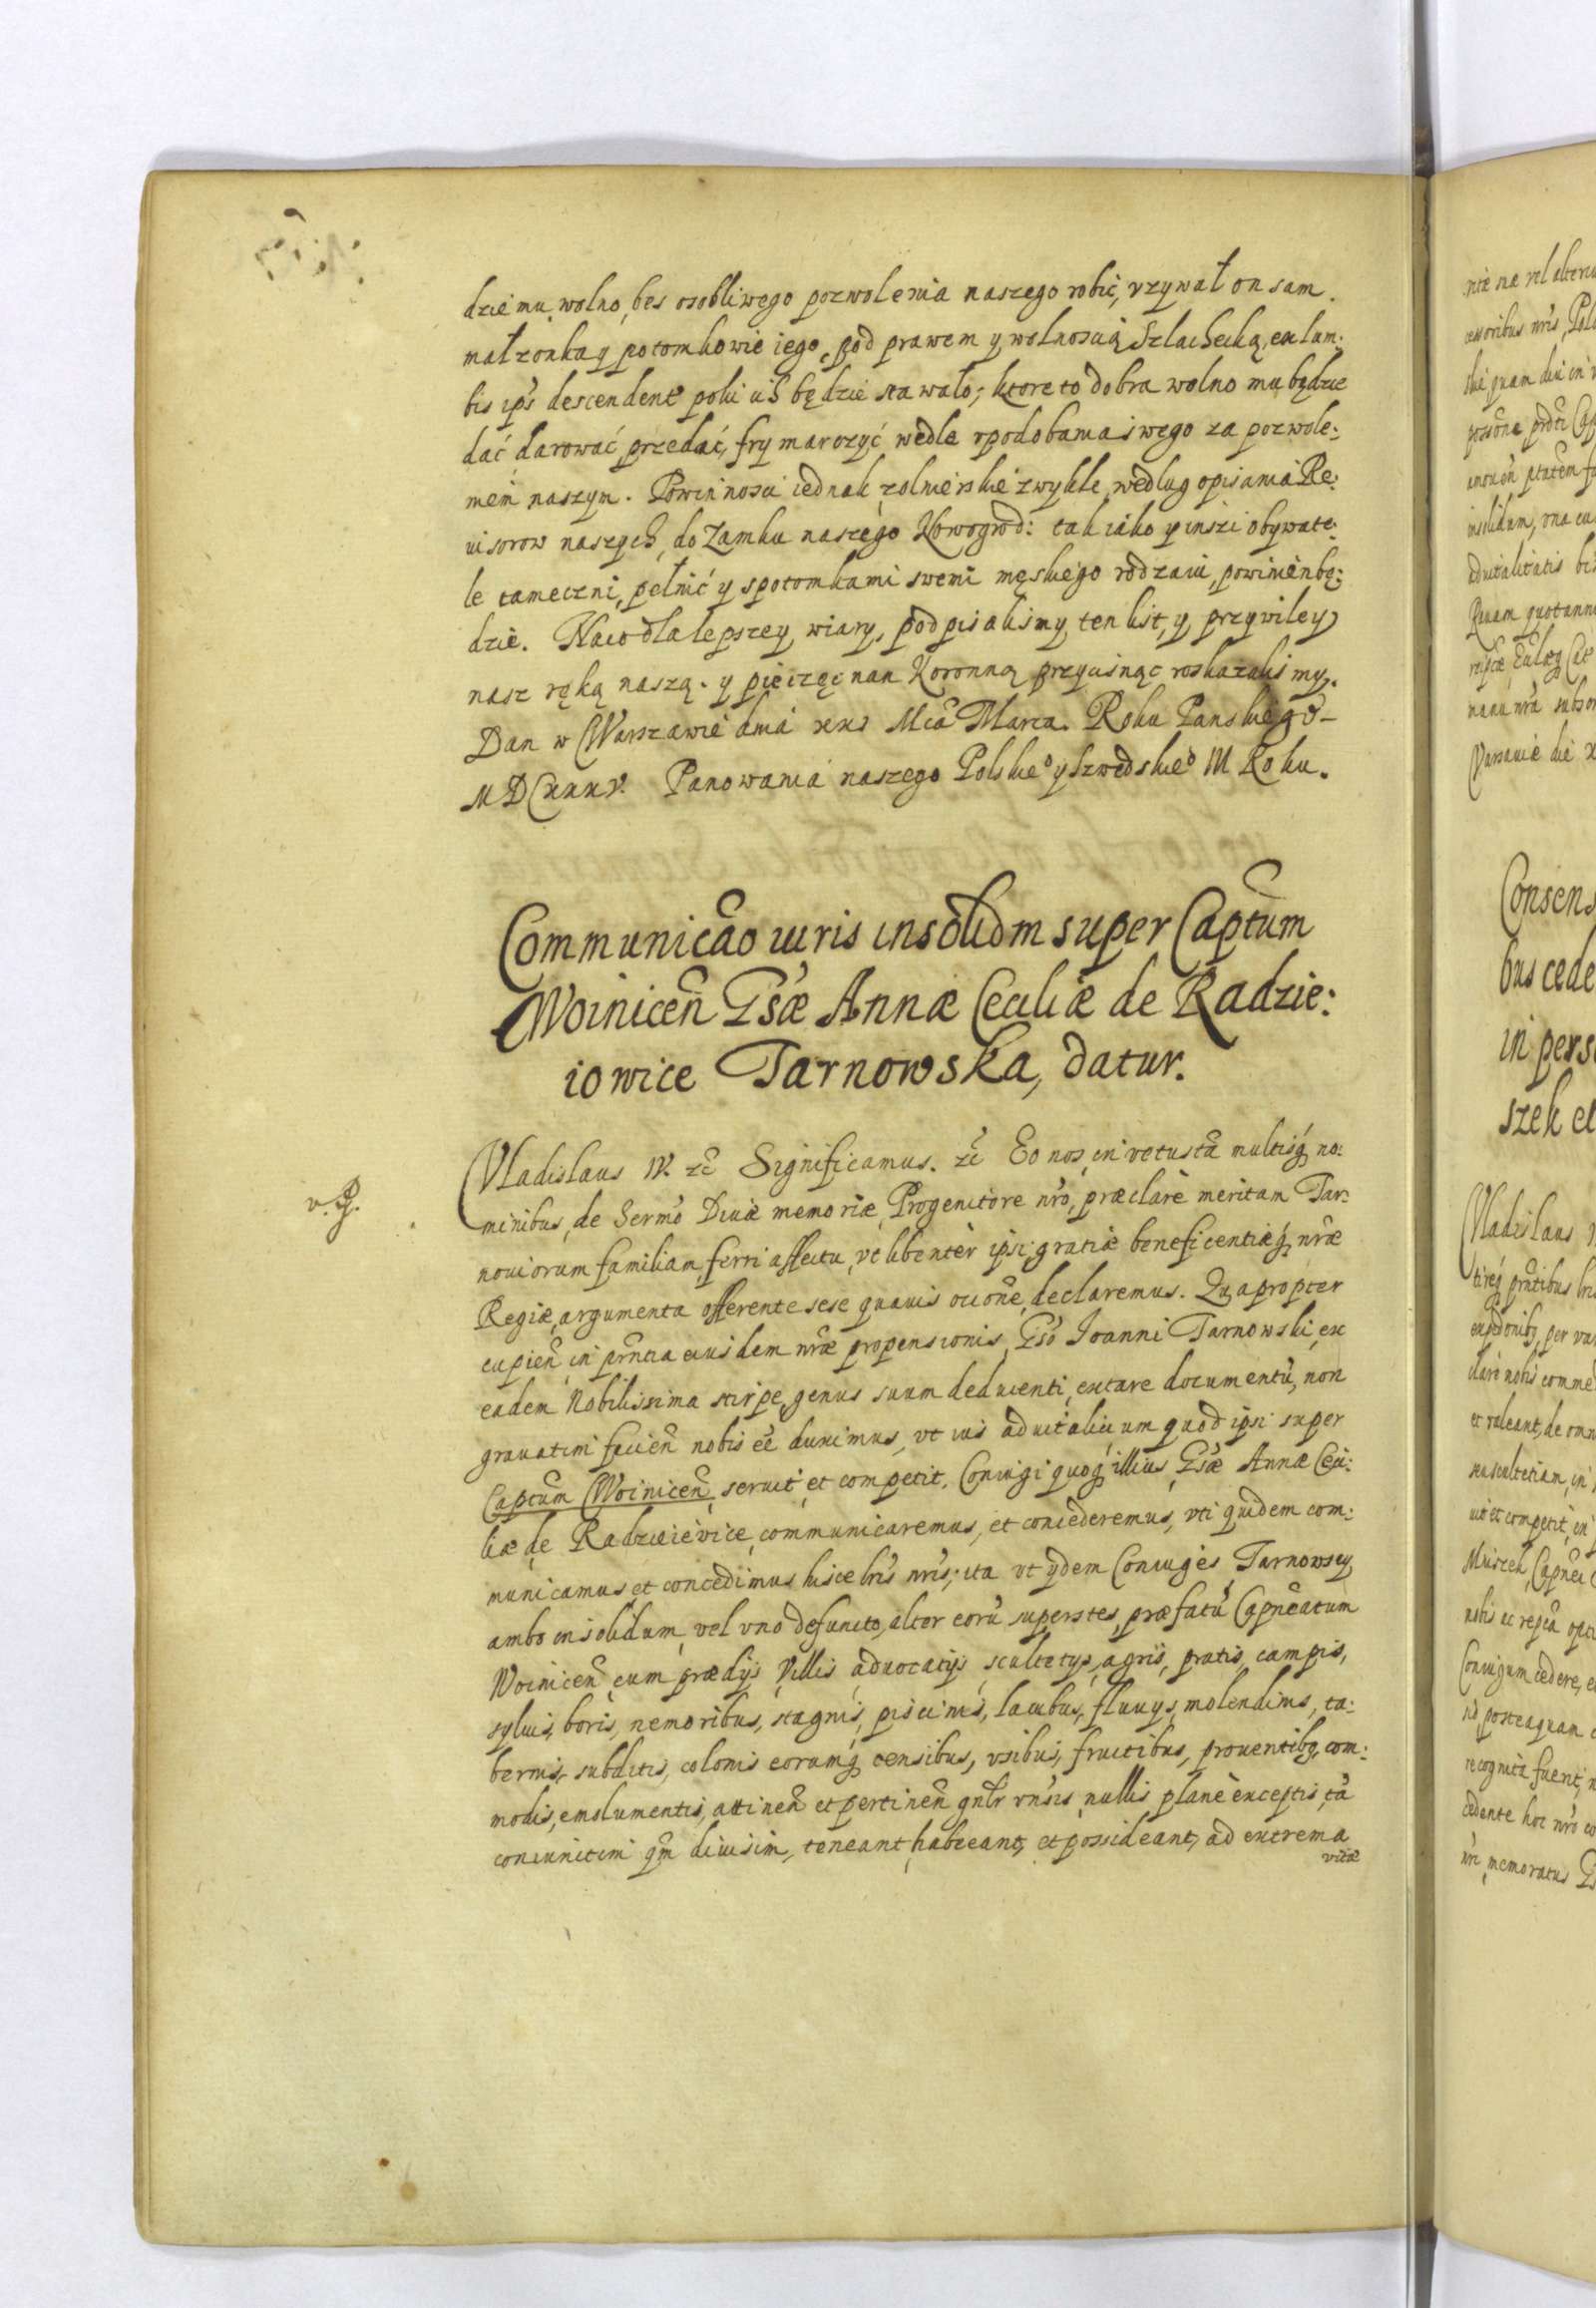 dzie mu wolno, bes osobliwego pozwolenia naszego robić, vzywał on sam
małzonka y potomkowie iego, pod prawem y wolnoscią Szlachecką, ex lum:
bis ips descendent poki ich będzie stawało; ktore to dobra wolno mu będzie
dać darować przedać, frymarczyć wedle vpodobania swego za pozwole:
niem naszym. Powinnosci iednak zolnierskie zwykłe, według opisania Re:
uisorow naszych, do Zamku naszego Nowogrod: tak iako y inszi obywate:
le tameczni, pełnić y spotomkami swemi męskiego rodzaiu, powinien bę:
dzie. Naco dla lepszey wiary, podpisalismy ten list, y przywiley
nasz ręką naszą. y pieczęć nan Koronną przycisnąc roskazalismy.
Dan w Warszawie dnia xxv Mca Marca. Roku Panskiego
MDCxxxv. Panowania naszego Polskieo y Szwedskieo III Roku.
Communicao iuris insolidm super Captum
Woinicen Gsæ Annæ Ceciliæ de Radzie:
iowice Tarnowska, datur.
v. g.
Vladislaus IV. zc Significamus. zc Eo nos, in vetusta multisq no:
minibus, de Sermo Diuæ memoriæ Progenitore nro, præclarè meritam Tar:
nouiorum familiam, ferri affectu, vt libentèr ipsi gratiæ beneficentiæq nræ
Regiæ, argumenta offerente sese quauis occone, declaremus. Quapropter
cupien in prntia eiusdem nræ propensionis, Gso Ioanni Tarnowski, ex
eadem Nobilissima stirpe, genus suum deducenti, extare documentu, non
grauatim facien nobis ee duximus, vt ius aduitalicium quod ipsi super
Captum Woinicen, seruit et competit, Coniugi quoq illius, Gsæ Annæ Ceci:
liæ de Radzieievice, communicaremus, et concederemus, vti quidem com:
municamus et concedimus hisce lris nris; ita vt ydem Coniuges Tarnowscy
ambo in solidum, vel vno defuncto, alter eoru superstes, præfatu Capneatum
Woinicen cum prædys Villis aduocatys, scultetys, agris, pratis, campis,
syluis, boris, nemoribus, stagnis, piscinis, lacubus, fluuys, molendinis, ta:
bernis, subditis, colonis eorumq censibus, vsibus, fructibus, prouentibq, com:
modis, emolumentis, attinen et pertinen gnlr vnsis nullis planè exceptis, ta
coniunctim qm diuisim, teneant, habeant, et possideant, ad extrema
vitæ